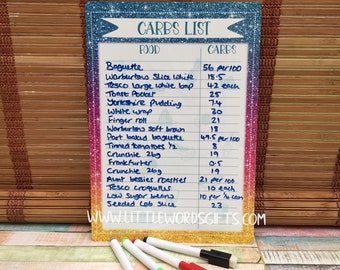 CARBS LIST
FOOD CARBS
Baguette 56 per 100
Warburtons Slice white 18.5
Tesco large white bap 42 each
Toast Pocket 25
Yorkshire pudding 7.4
White wrap 30
Finger roll 21
Warburtons soft brown 18
Part baked baguette 49.5 per 100
Tinned tomatoes ½ 8
Crunchie 26g 19
Frankfurter 0.5
Crunchie 26g 19
Aunt bessies roasties 21 per 100
Tesco Croquettes 10 each
Low Sugar beans 10 per ½ can
Seeded Cob Slice 23
WWW.LITTLEWORDSGIFTS.COM